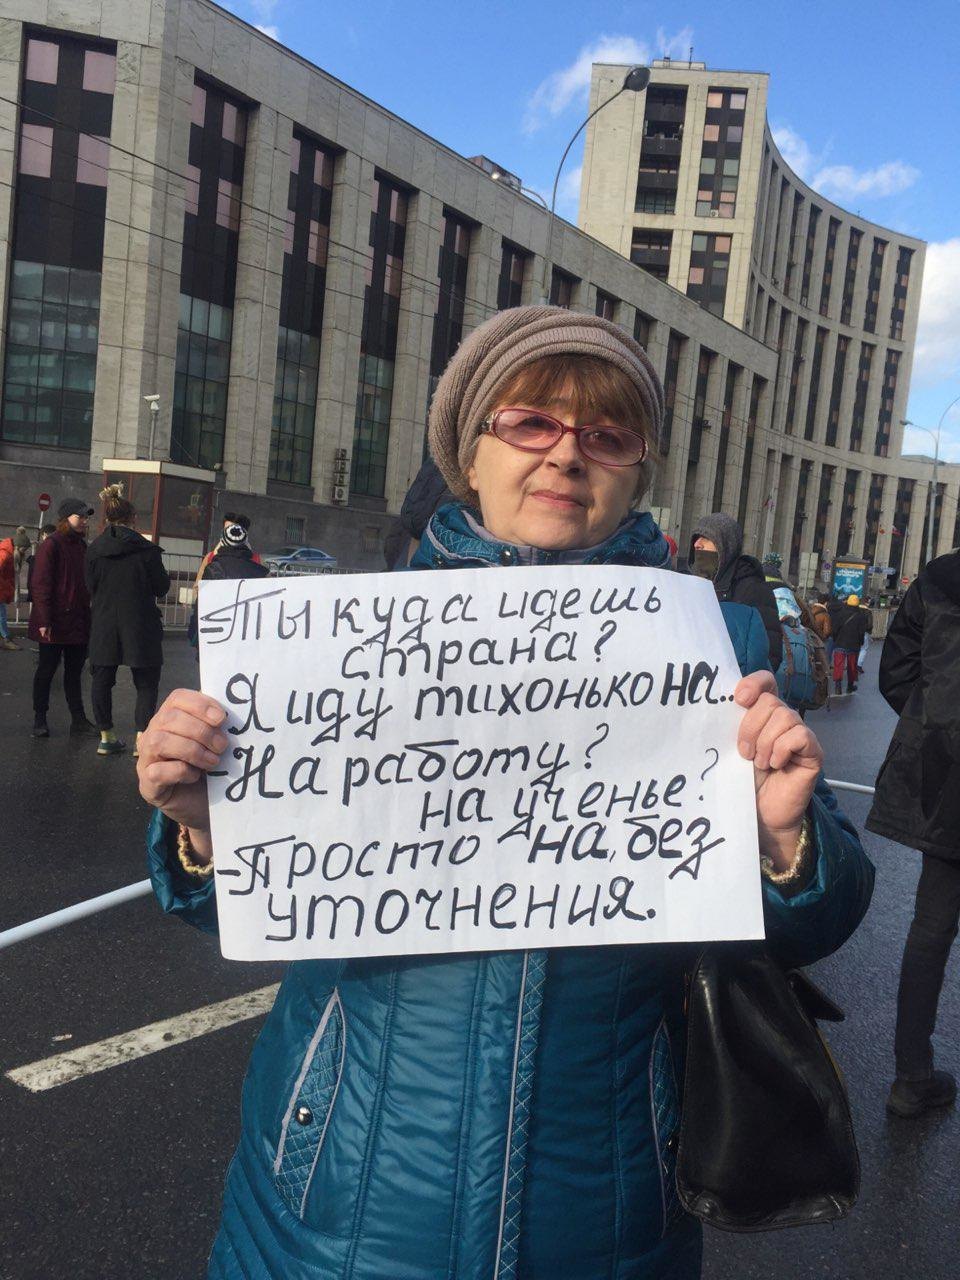 -Ты куда идешь
страна?
Я иду тихонько на...
-На работу?
на ученье?
-Просто на, без
уточнения.